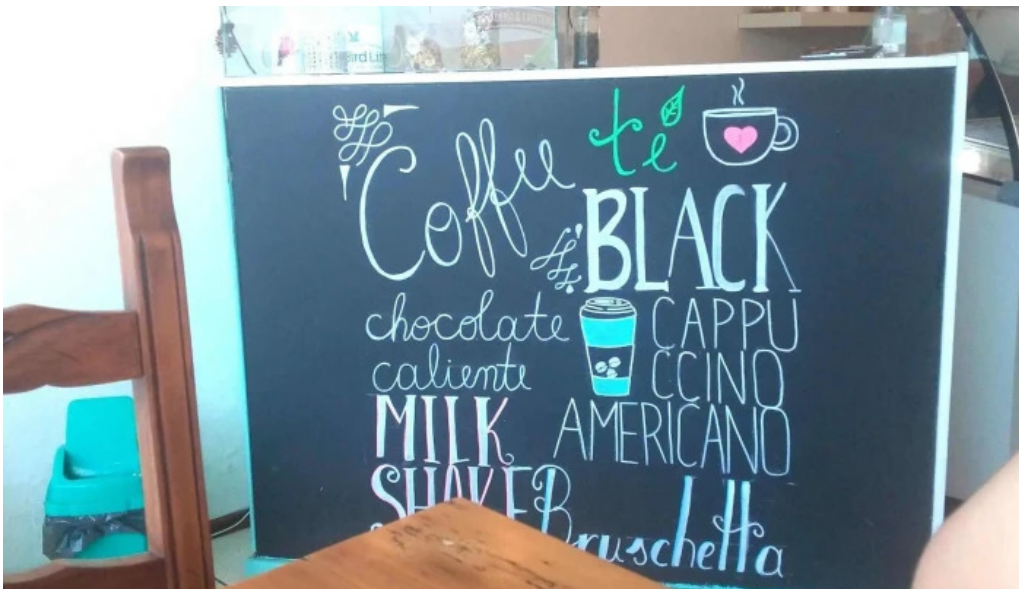 té
Coffee
BLACK
chocolate
caliente
CAPPU
CCINO
MILK
AMERICANO
SHAKE
Bruschetta